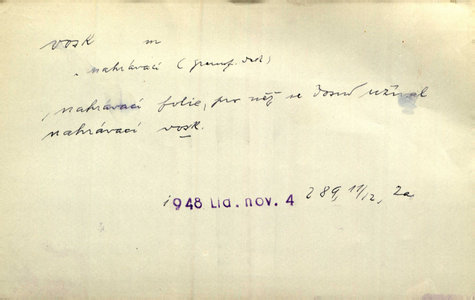 vosk m
nahrávací (gramof. desk)
nahrávací folie, pro něj se dosud užíval
nahrávací vosk.
1948 Lid. nov. 4 289, 11/12, 2a